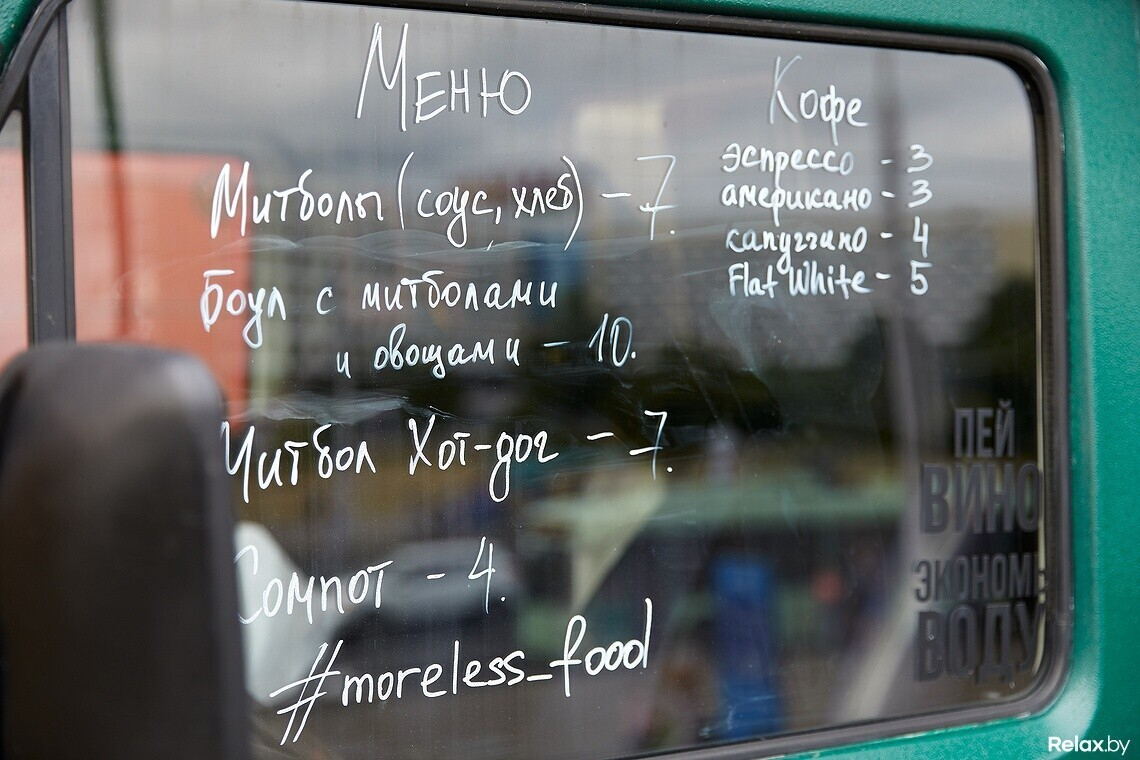 Меню
Митболы (соус, хлеб) - 7.
Боул с митболами
и овощами - 10.
Митбол Хот-дог - 7.
Сомпот - 4.
#moreless_food
Кофе
эспрессо - 3
американо - 3
капуггино - 4
Flat White - 5
ПЕЙ
ВИНО
ЭКОНОМЬ
ВОДУ
Relax.by